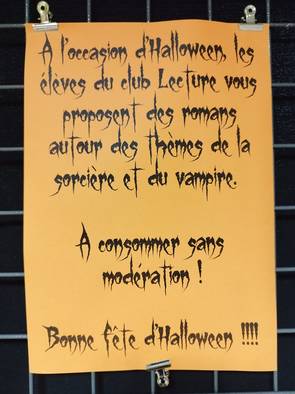 A l'occasion d'Halloween, les
élèves du club Lecture vous
proposent des romans
autour des thèmes de la
sorcière et du vampire.
A consommer sans
modération !
Bonne fête d'Halloween !!!!